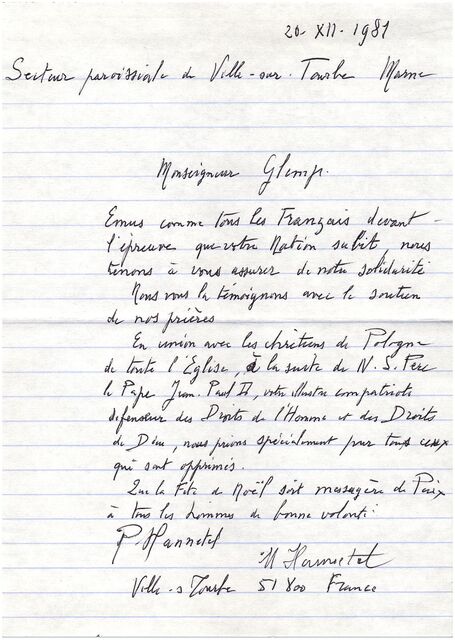 20-XII-1981
Secteur paroissiale de Ville-sur-Tourbe Marne
Monseigneur Glemp.
Emus comme tous les Français devant
l'épreuve que votre Nation subit, nous
tenons à vous assurer de notre solidarité
Nous vous la témoignons avec le soutien
de nos prières
En union avec les chrétiens de Pologne
de toute l'Eglise, à la suite de N. S. Père
le Pape Jean-Paul II, votre illustre compatriote
défenseur des Droits de l'Homme et des Droits
de Dieu, nous prions spécialement pour tous ceux
qui sont opprimés.
Que la Fête de Noël soit messagère de Paix
à tous les hommes de bonne volonté.
P. Hannetel
Ville-s Tourbe 51800 France